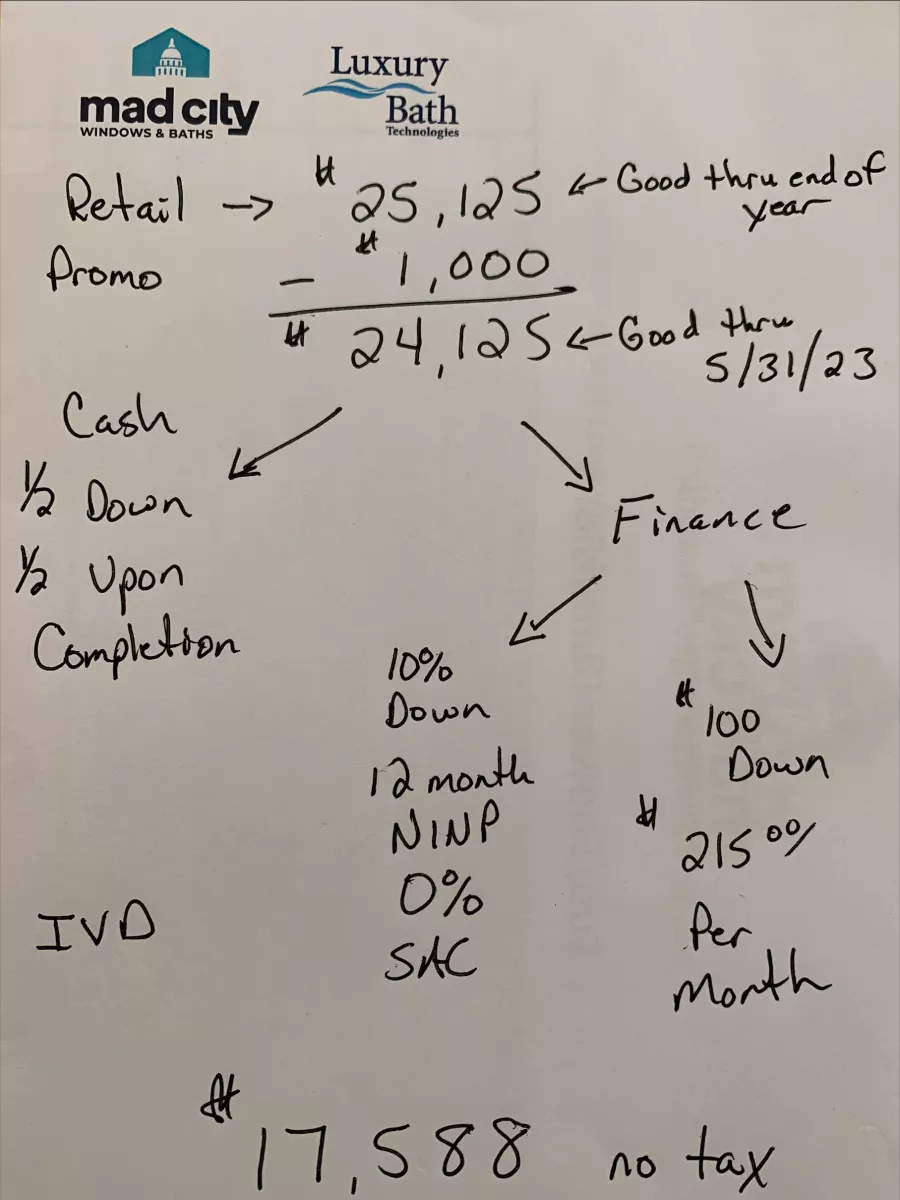 mad city
WINDOWS & BATHS
Luxury
Bath
Technologies
Retail → $ 25,125 ← Good thru end of
year
Promo - $ 1,000
$ 24,125 ← Good thru
5/31/23
Cash
1/2 Down
1/2 Upon
Completion
Finance
10%
Down
12 month
NINP
0%
SAC
$ 100
Down
$ 215 00/
Per
Month
IVD
$ 17,588 no tax